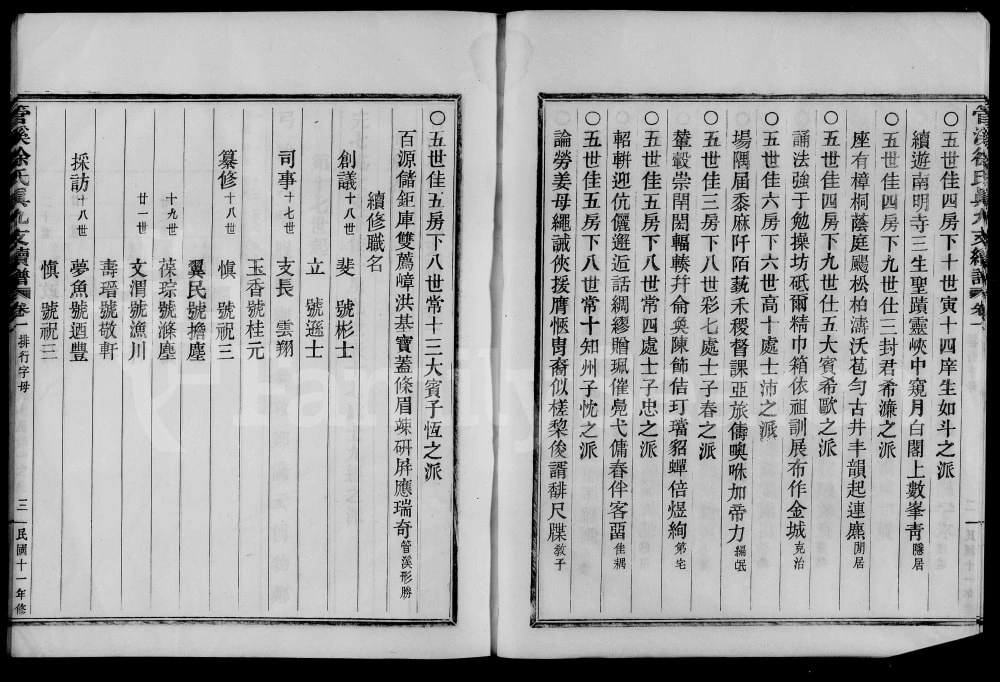 〇五世佳四房下十世寅十四庠生如斗之派
續遊南明寺三生聖蹟靈峽中窺月白閣上數峯靑隱居
〇五世佳四房下九世仕三封君希濂之派
座有樟桐蔭庭颺松柏濤沃苞勻古井丰韻起連廘閒居
〇五世佳四房下九世仕五大賓希歐之派
誦法強于勉操坊砥爾精巾箱依祖訓展布作金城克治
〇五世佳六房下六世高十處士沛之派
場隅屆黍麻阡陌蓺禾稷督課亞旅儔噢咻加帝力編氓
〇五世佳三房下八世彩七處士子春之派
輦轂崇閈閎輻輳幷侖奐陳飾佶玎璫貂蟬倍煜絢第宅
〇五世佳五房下八世常四處士子忠之派
軺軿迎伉儷邂逅話綢繆贈珮催鳧弋傭舂伴客畱隹耦
〇五世佳五房下八世常十知州子忱之派
論勞姜母繩誡俠援膺愜冑裔似槎棃俊諝馡尺牒敎子
〇五世佳五房下八世常十三大賓子恆之派
百源儲鉅庫雙薦嶂洪基寶蓋條眉竦硏屛應瑞奇管溪形勝
續修職名
創議十八世 斐 號彬士
立 號遜士
司事十七世 支長 雲翔
玉香號桂元
纂修十八世 愼 號祝三
翼民號擔塵
十九世 葆琮號滌塵
廿一世 文渭號漁川
壽瑨號敬軒
採訪十八世 夢魚號迺豐
愼 號祝三
管溪徐氏眞九支續譜 卷一 排行字母 三 民國十一年修